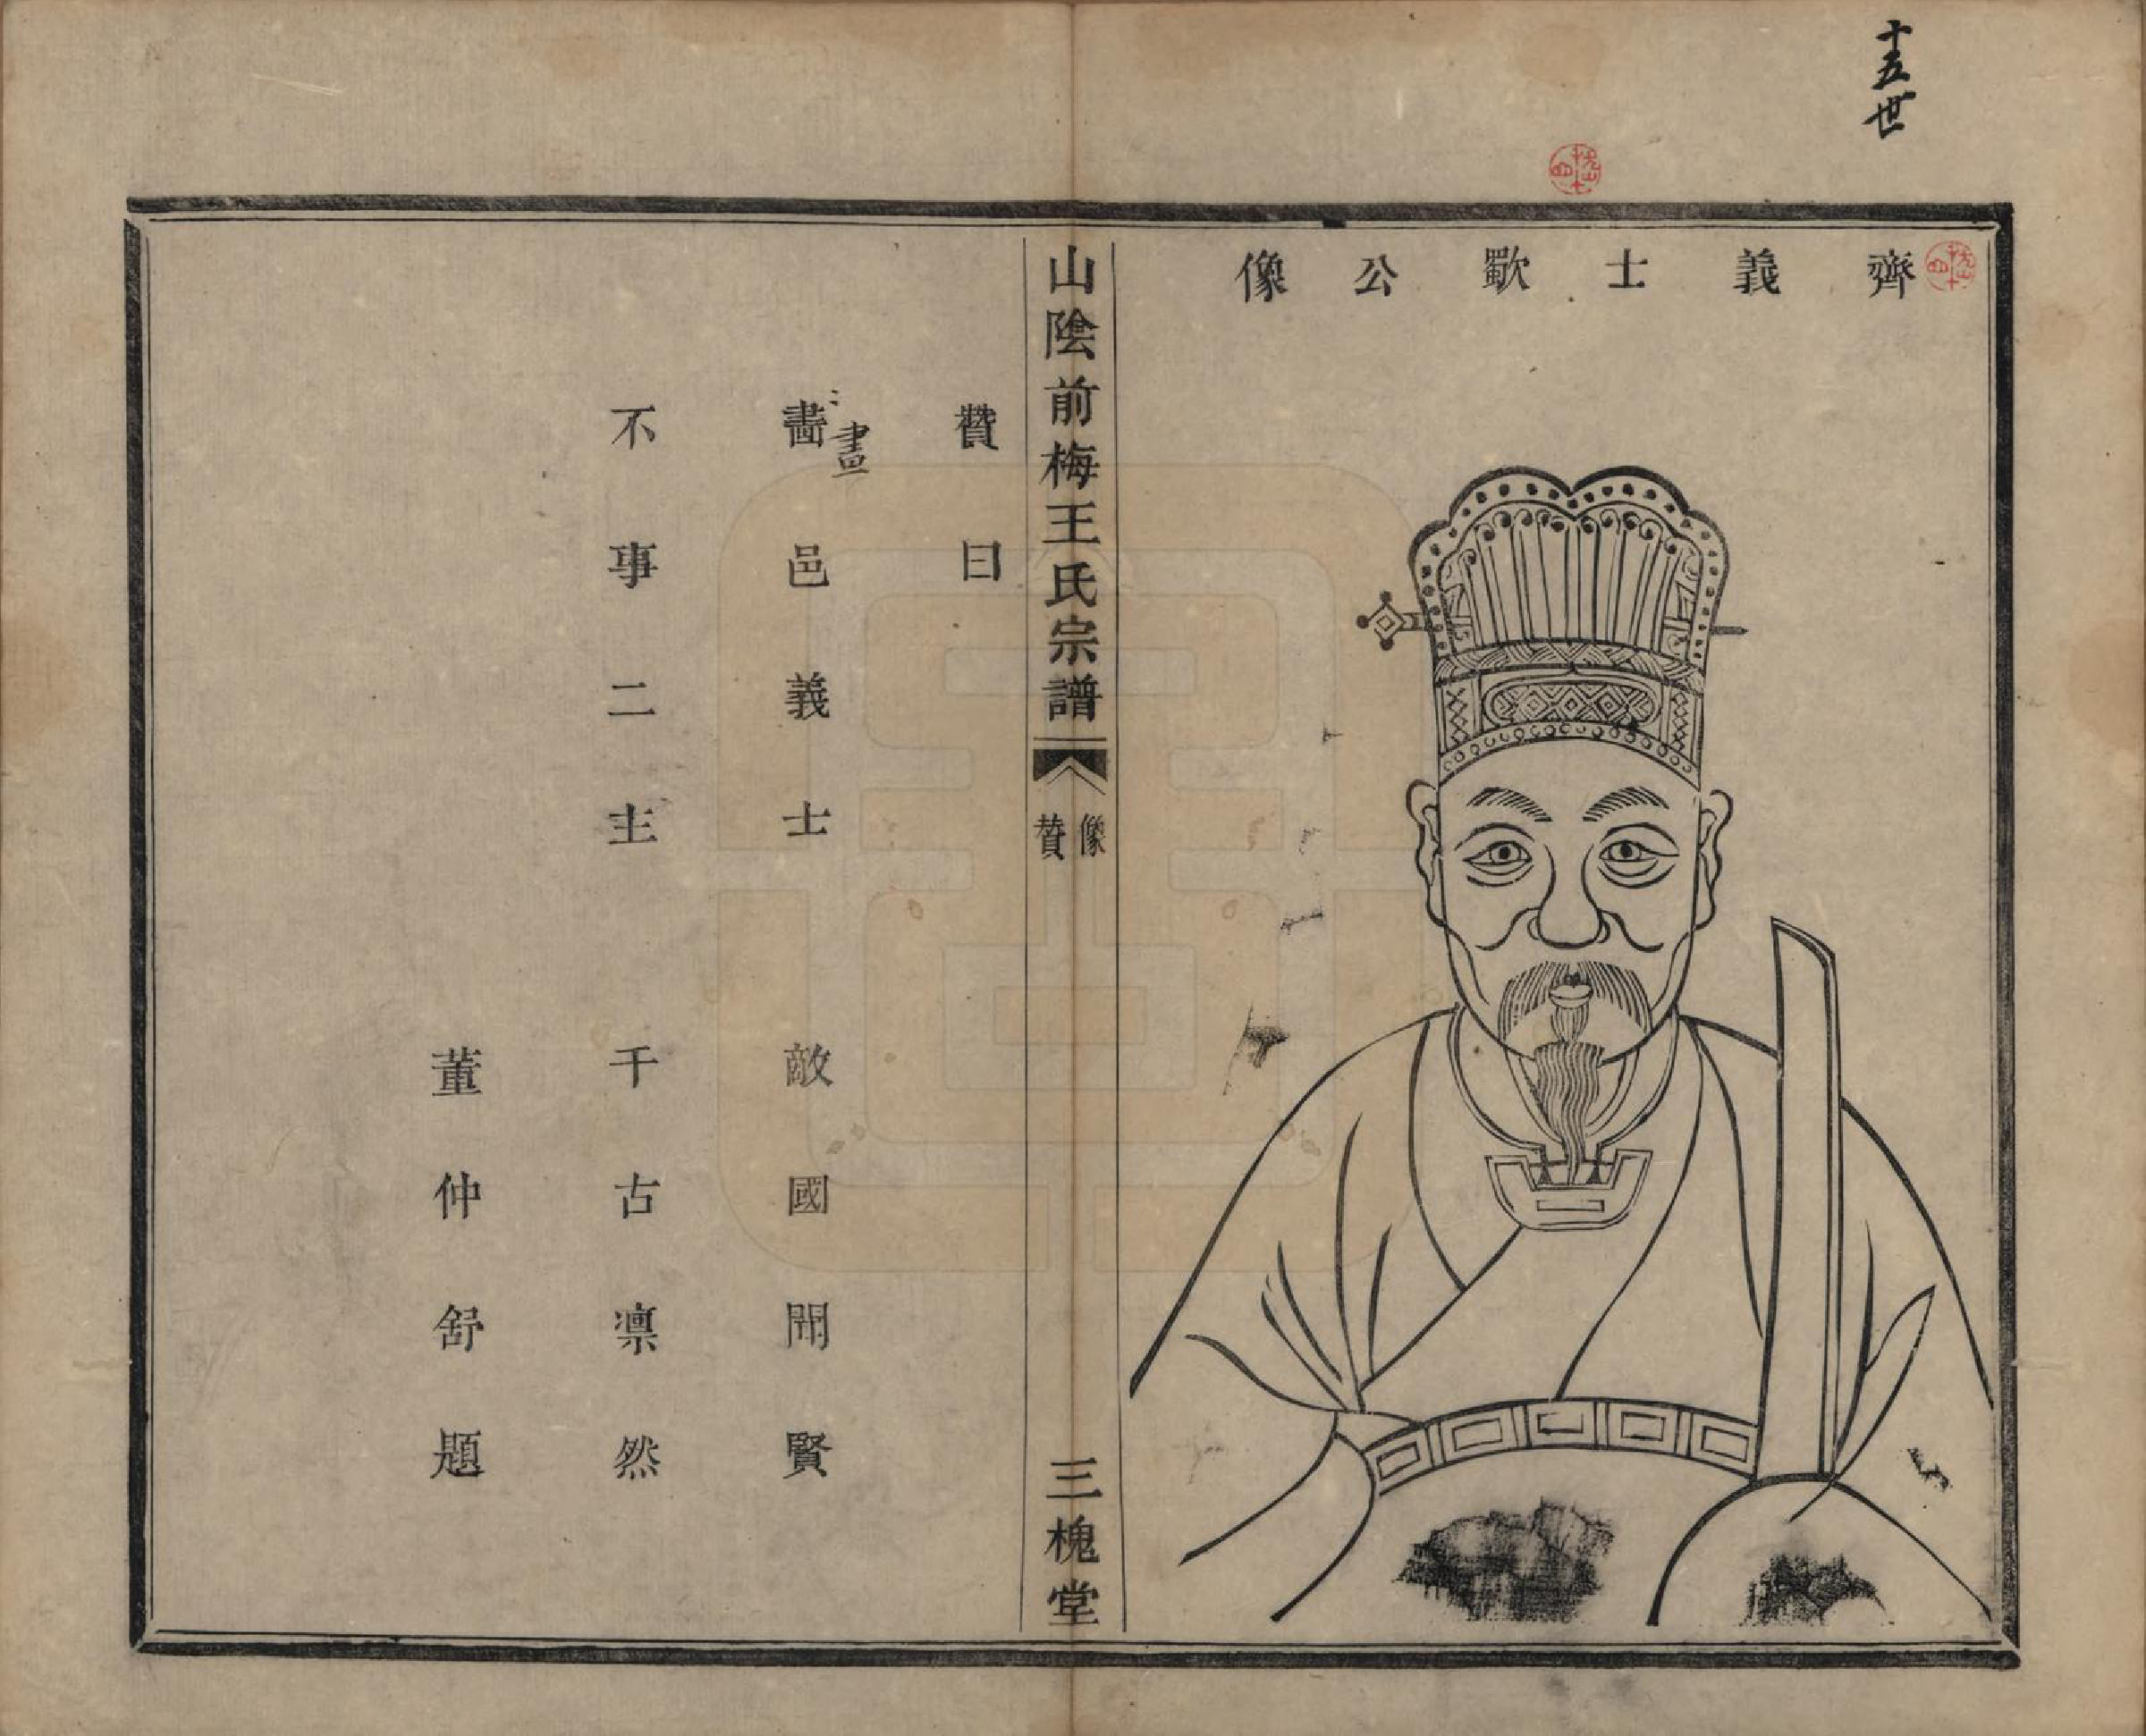 十五世
齊義士歜公像
山陰前梅王氏宗譜
像
贊
三槐堂
贊曰
畵邑義士 敵國聞賢
畫
不事二主 千古凛然
董仲舒題